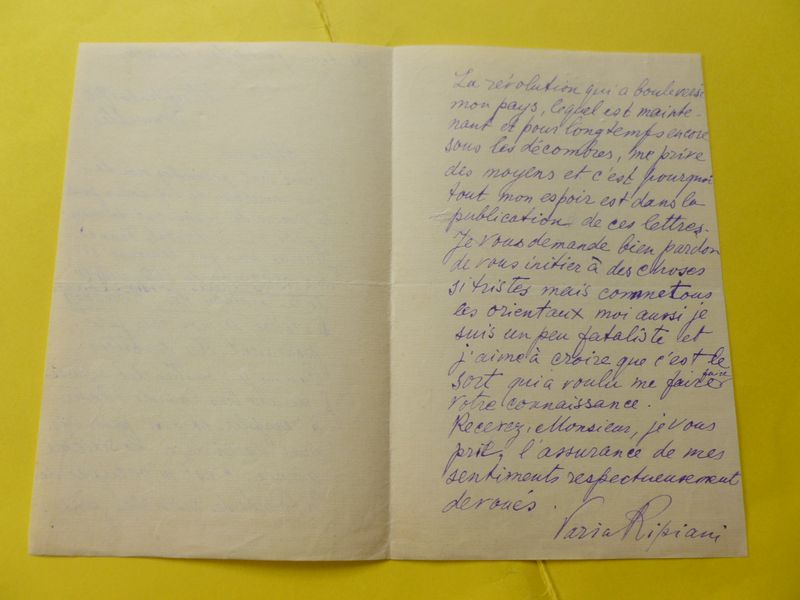 La révolution qui a bouleversé
mon pays, lequel est mainte-
nant et pour longtemps encore
sous les décombres, me prive
des moyens et c'est pourquoi
tout mon espoir est dans la
publication de ces lettres.
Je vous demande bien pardon
de vous initier à des choses
si tristes mais comme tous
les orientaux moi aussi je
suis un peu fataliste et
j'aime à croire que c'est le
sort qui a voulu me faire
votre connaissance.
Recevez, Monsieur, je vous
prie, l'assurance de mes
sentiments respectueusement
dévoués.
Varia Kipiani